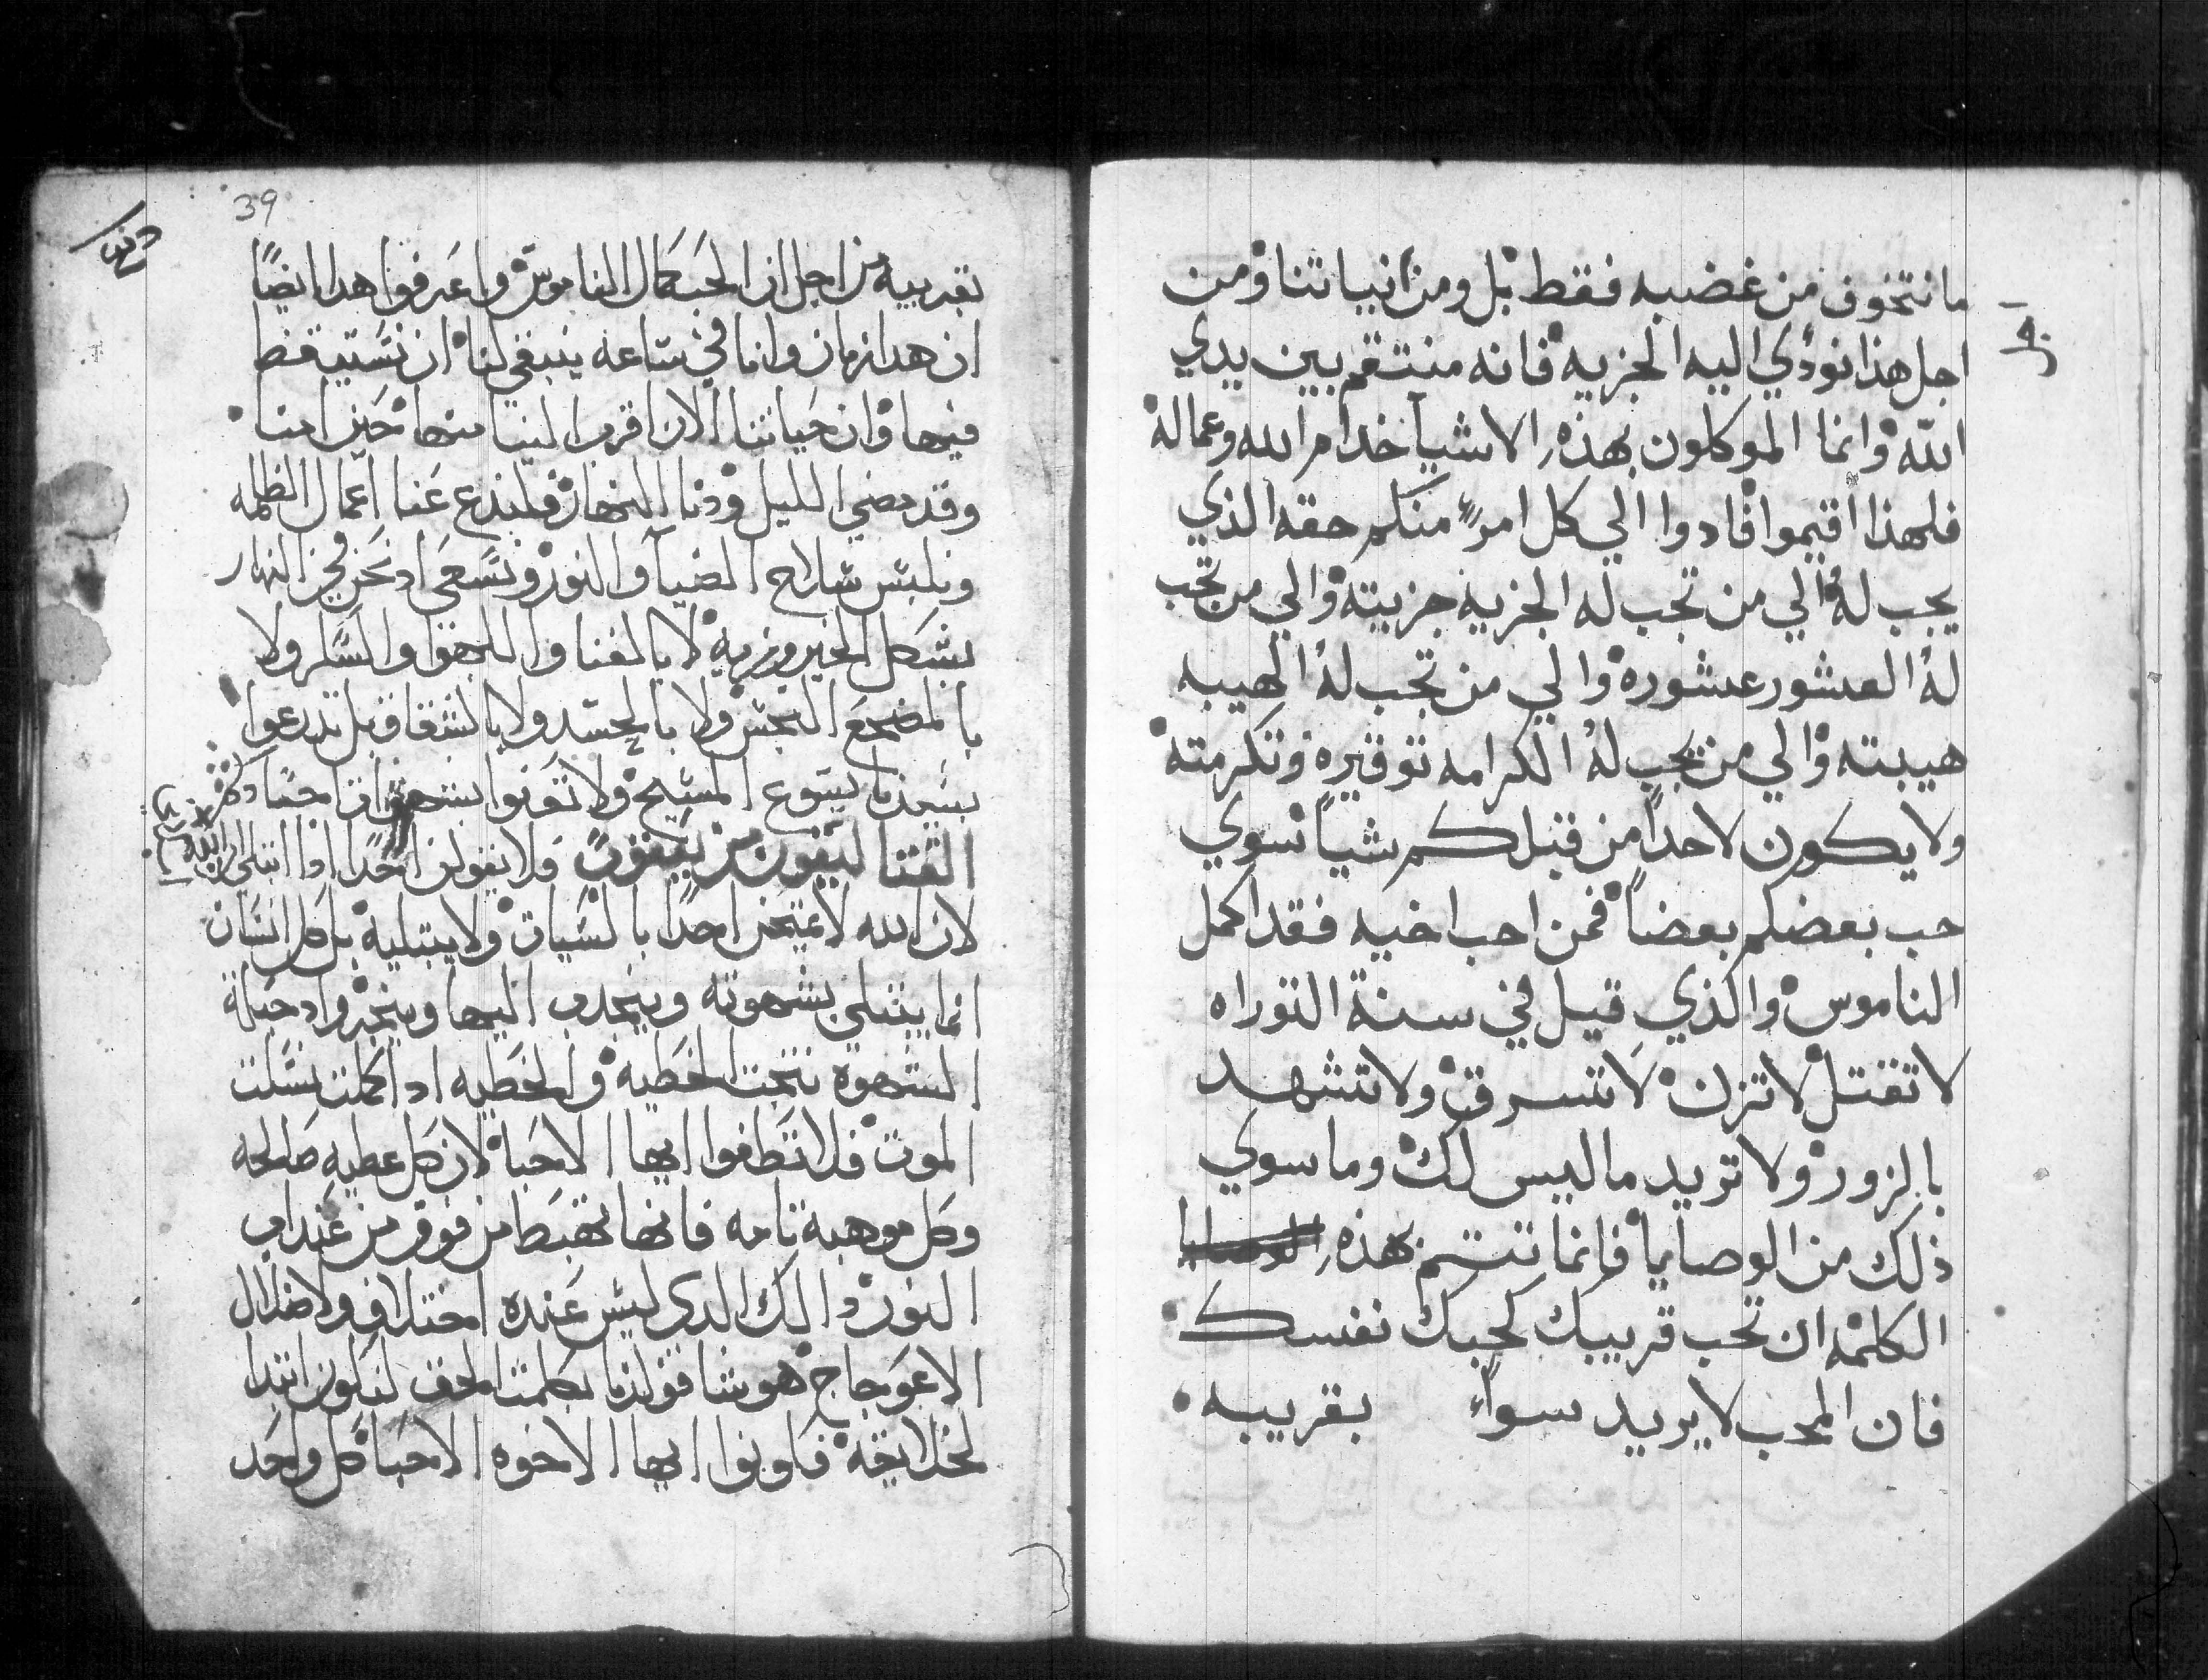 ما نتخوف من غضبه فقط بل ومن انياتنا ومن
اجل هذا نودي اليه الجزيه فانه منتقم بين يدي
الله وانما الموكلون بهذه الاشيا خدام الله وعماله
فلهذا اقيموا فادوا الي كل امرءٍ منكم حقه الذي
يجب له والي من تجب له الجزيه جزيته والي من تجب
له العشور عشوره والي من تجب له الهيبه
هيبته والي من تجب له الكرامه توقيره وتكرمته
ولا يكون لاحداً من قبلكم شياً سوي
حب بعضكم بعضاً فمن احب اخيه فقد اكمل
الناموس والذي قيل في سنة التوراه
لا تقتل لا تزن لا تسرق ولا تشهد
بالزور ولا تريد ما ليس لك وما سوي
ذلك من الوصايا فانما تتم بهذه الوصايا
الكلمه ان تحب قريبك كحبك نفسك
فان المحب لا يريد سواءً بقريبه
39
بقريبه من اجل ان الحب كمال الناموس واعرفوا هدا ايضاً
ان هدا زمان وانما في ساعه ينبغي لنا ان نستيقظ
فيها وان حياتنا الان اقرب الينا منها حين امنا
وقد مضي الليل ودنا النهار فلندع عنا اعمال الظلمه
ونلبس سلاح الضيا والنور ونسعي اد نحن في النهار
بشكل الخير وزيه لا بالغنا واللهو والسكر ولا
بالمضجع النجس ولا بالحسد ولا بالشقاق بل تدرعوا
بسيدنا يسوع المسيح ولا تعنوا بشهوات اجسادكم
القتاليقون من يعقوب فلا يقولن احدا ادا ابتلي ان الله
لان الله لا يمتحن احدا بالسيات ولا يبتليه بل كل انسان
انما يبتلي بشهوته وينجدب اليها وينجر واد حبلة
الشهوه نتجت الخطيه والخطيه ادا كملت نسلت
الموت فلا تطغوا ايها الاحبا لان كل عطيه صالحه
وكل موهبة تامه فانها تهبط من فوق من عند اب
النور دالك الدي ليس عنده اختلاف ولا ضلال
الاعوجاج هو شا فولدنا بكلمت الحق لنكون ابتدا
لخلايقه فكونوا ايها الاخوه الاحبا كل واحد